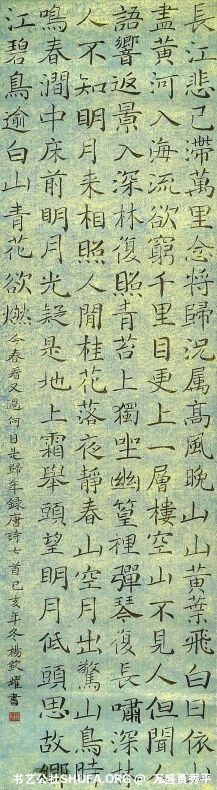 長江悲已滯萬里念將歸況屬髙風晚山山黃葉飛白日依山
盡黃河入海流欲窮千里目更上一層樓空山不見人但聞人
語響返景入深林復照青苔上獨坐幽篁裡彈琴復長嘯深林
人不知明月来相照人閒桂花落夜靜春山空月出驚山鳥時
鳴春澗中床前明月光疑是地上霜舉頭望明月低頭思故鄉
江碧鳥逾白山青花欲燃今春看又過何日是歸年録唐詩七首己亥年冬楊欽耀書
书艺公社SHUFA.ORG @ 万盛贾秀平